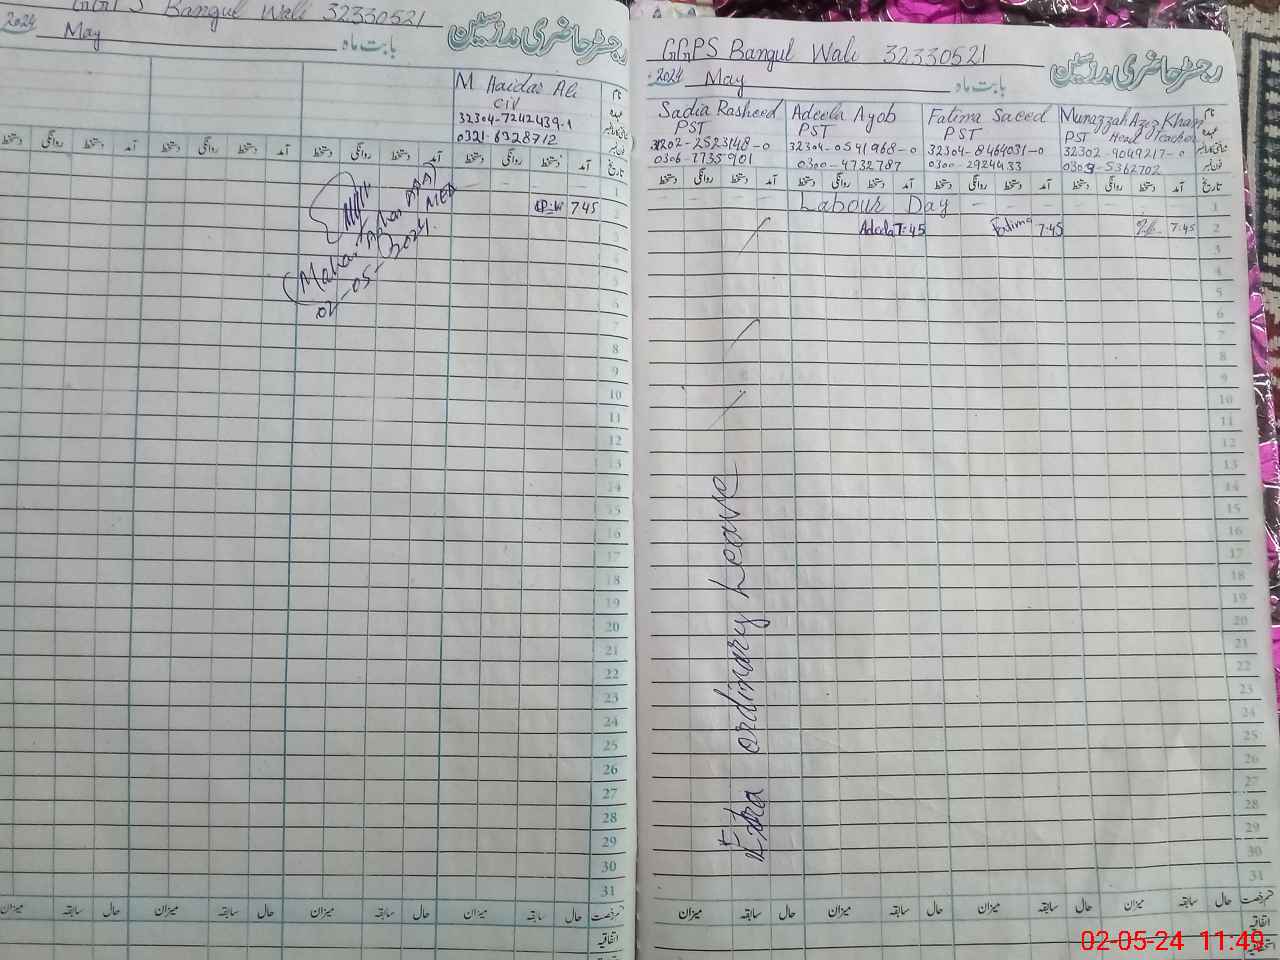 GGPS Bangul Wali 32330521
2024 May بابت ماہ
رجسٹر حاضری مدرسین
M Haidar Ali
CIV
32304-7242439-1
0321-6328712
نام
عہدہ
تاریخ آمد دستخط روانگی دستخط آمد دستخط روانگی دستخط آمد دستخط روانگی دستخط آمد دستخط روانگی دستخط
1
2 7:45
3
4
5
6
7
8
9
10
11
12
13
14
15
16
17
18
19
20
21
22
23
24
25
26
27
28
29
30
31
حال سابقہ میزان حال سابقہ میزان حال سابقہ میزان حال سابقہ میزان
اتفاقیہ
02-05-2024
GGPS Bangul Wali 32330521
2024 May بابت ماہ
رجسٹر حاضری مدرسین
Sadia Rasheed Adeela Ayob Fatima Saeed Munazzah Azer Khan نام
PST PST PST PST Head Teacher عہدہ
31202-2523148-0 32304-0541968-0 32304-8464031-0 32302-9049217-0
0306-7735901 0300-4732787 0300-2924433 0309-5362702
تاریخ آمد دستخط روانگی دستخط آمد دستخط روانگی دستخط آمد دستخط روانگی دستخط آمد دستخط روانگی دستخط
Labour Day 1
Adeela 7:45 Fatima 7:45 7:45 2
3
4
5
6
7
8
9
10
11
12
13
14
15
16
17
18
19
20
21
22
23
24
25
26
27
28
29
30
31
Extra ordinary Leave
حال سابقہ میزان حال سابقہ میزان حال سابقہ میزان حال سابقہ میزان
اتفاقیہ
02-05-24 11:49